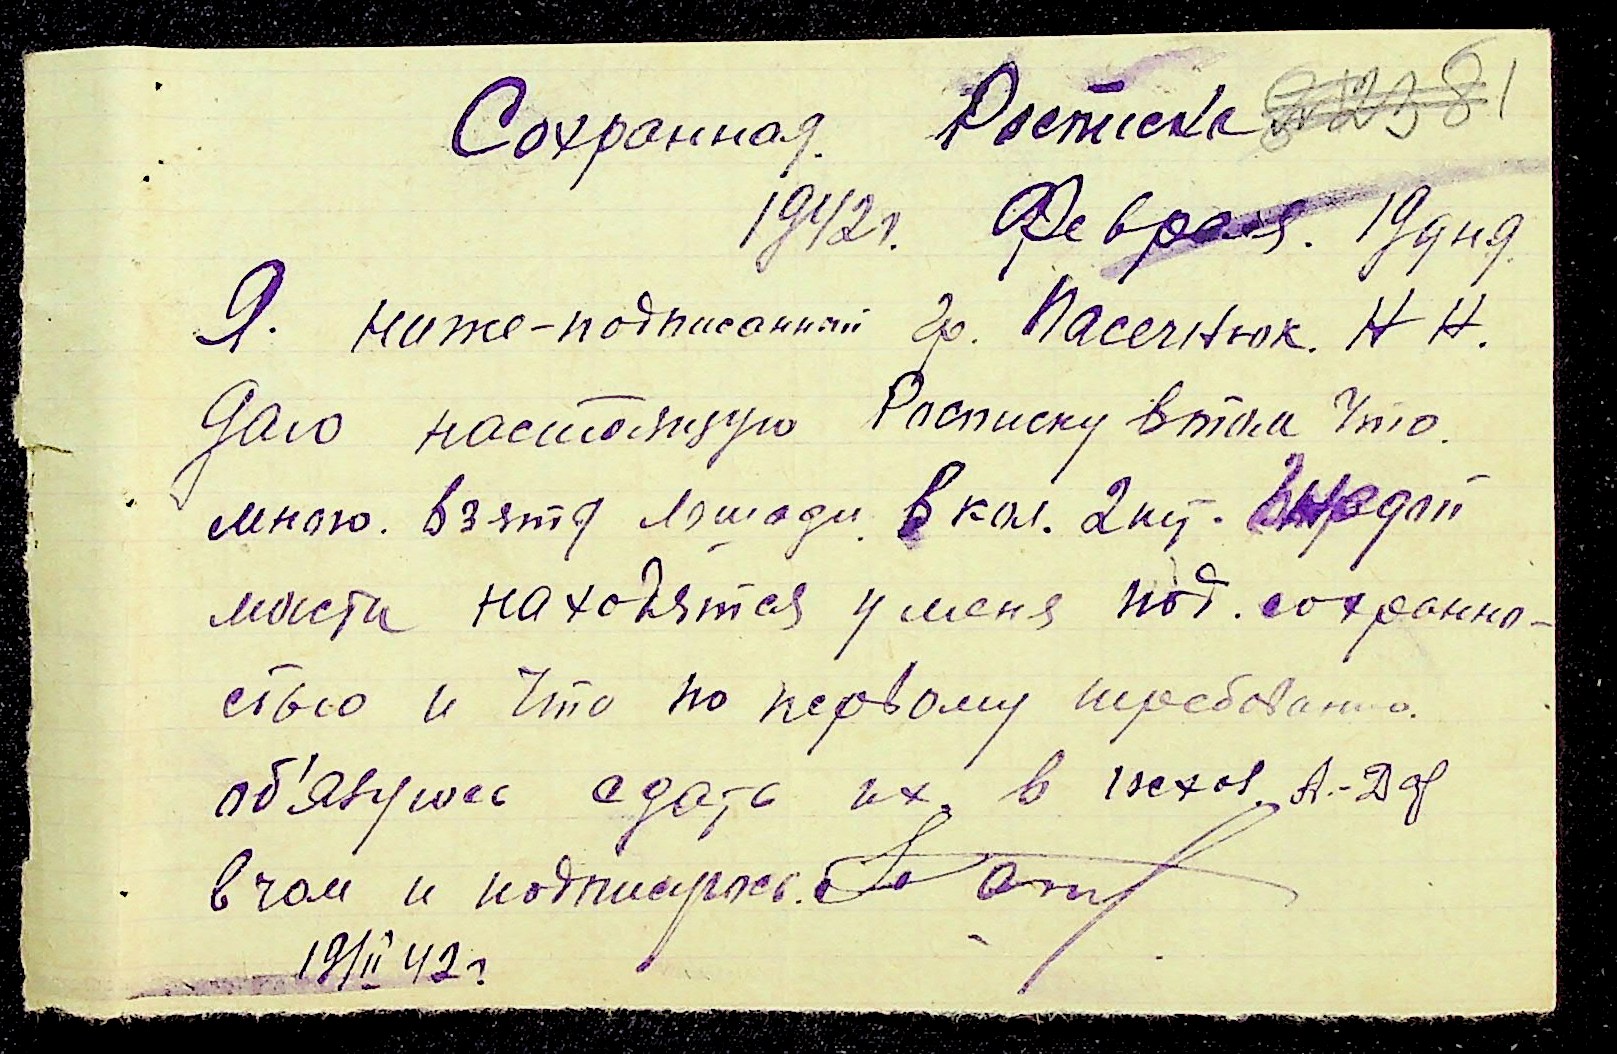 Сохранная Росписка 81
1942 г. Февраля. 19 дня
Я. ниже-подписанный гр. Пасечнюк. Н Н.
даю настоящую Росписку втом Что.
мною. взято лошади. в кол. 2 шт.
масти находятся у меня под. сохранно-
стью и Что по первому требованию.
об'язуюсь сдать их. в
в чом и подписуюсь.
19/II 42 г.